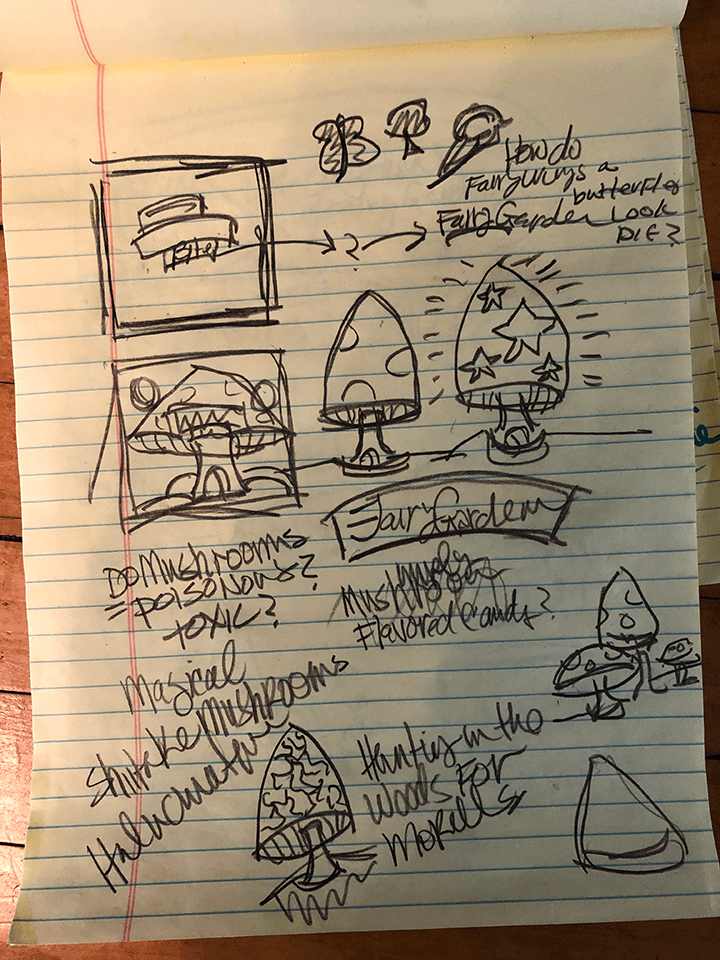 How do
Fairy Wings a
butterflies
Fairy Garden Look
DIE?
?
Fairy Garden
Do Mushrooms
= POISONOUS?
TOXIC?
Mushroom
Flavored Candy?
Magical
Shiitake Mushrooms
Hunting in the
Woods For
Morells